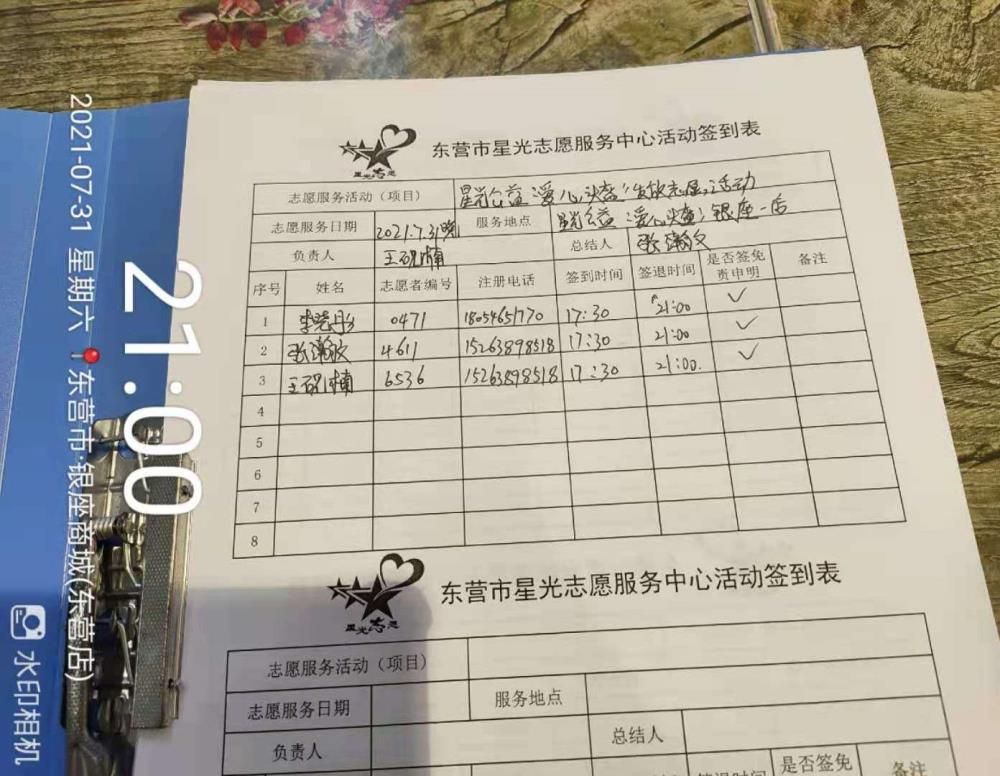 2021-07-31 星期六 东营市·银座商城(东营店)
21:00
水印相机
星光志愿
东营市星光志愿服务中心活动签到表
志愿服务活动（项目） 星光公益"爱心头盔"发放志愿活动
志愿服务日期 2021.7.31晚 服务地点 星光公益 爱心头盔 银座一店
负责人 王砚楠 总结人 张瀚文
序号 姓名 志愿者编号 注册电话 签到时间 签退时间 是否签免责申明 备注
1 0471 18054651770 17:30 21:00 ✓
2 4611 15263898518 17:30 21:00 ✓
3 王砚楠 6536 15263898518 17:30 21:00. ✓
4
5
6
7
8
星光志愿
东营市星光志愿服务中心活动签到表
志愿服务活动（项目）
志愿服务日期 服务地点
负责人 总结人
签退时间 是否签免 备注